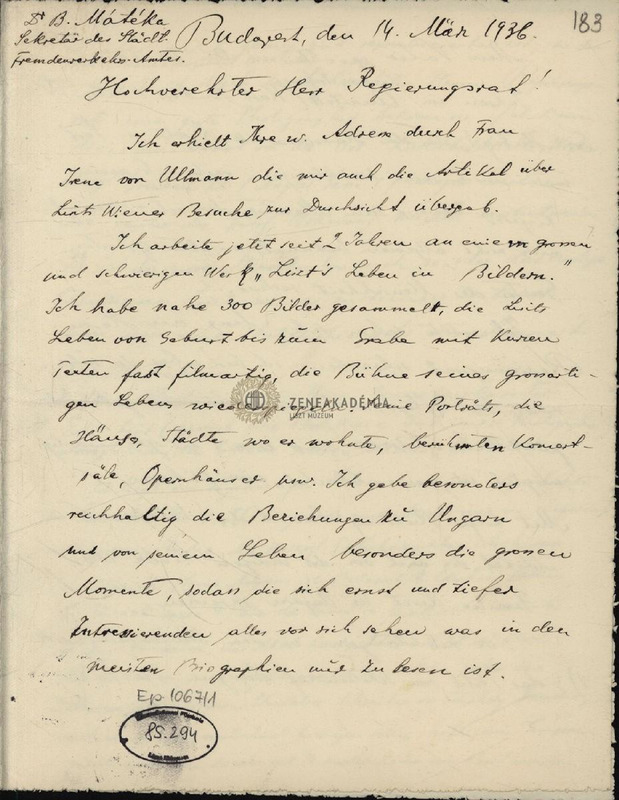 Dr B. Mátéka
Sekretär des Städt.
Fremdenverkehrs-Amtes.
Budapest, den 14. März 1936.
183
Hochverehrter Herr Regierungsrat!
Ich erhielt Ihre w. Adress durch Frau
Irene von Ullmann die mir auch die Artikel über
Liszts Wiener Besuche zur Durchsicht übergab.
Ich arbeite jetzt seit 2 Jahren an einem grossen
und schwierigen Werk „Liszt's Leben in Bildern."
Ich habe nahe 300 Bilder gesammelt, die Liszts
Leben von Geburt bis zum Grabe mit kurzen
Texten fast filmartig, die Bühne seines grossarti-
gen Lebens Porträts, die
Häuser, Städte wo er wohnte, berühmten Konzert-
säle, Opernhäuser usw. Ich gebe besonders
reichhaltig die Beziehungen zu Ungarn
und von seinem Leben besonders die grossen
Momente, sodass die sich ernst und tiefer
Intressierenden alles vor sich sehen was in den
meisten Biographien nur zu lesen ist.
ZENEAKADÉMIA
LISZT MÚZEUM
Ep. 1067/1
85.294